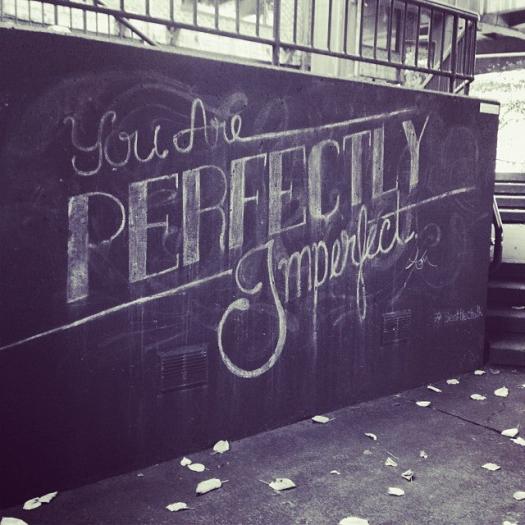 You Are
PERFECTLY
Imperfect.
#SeattleChalk